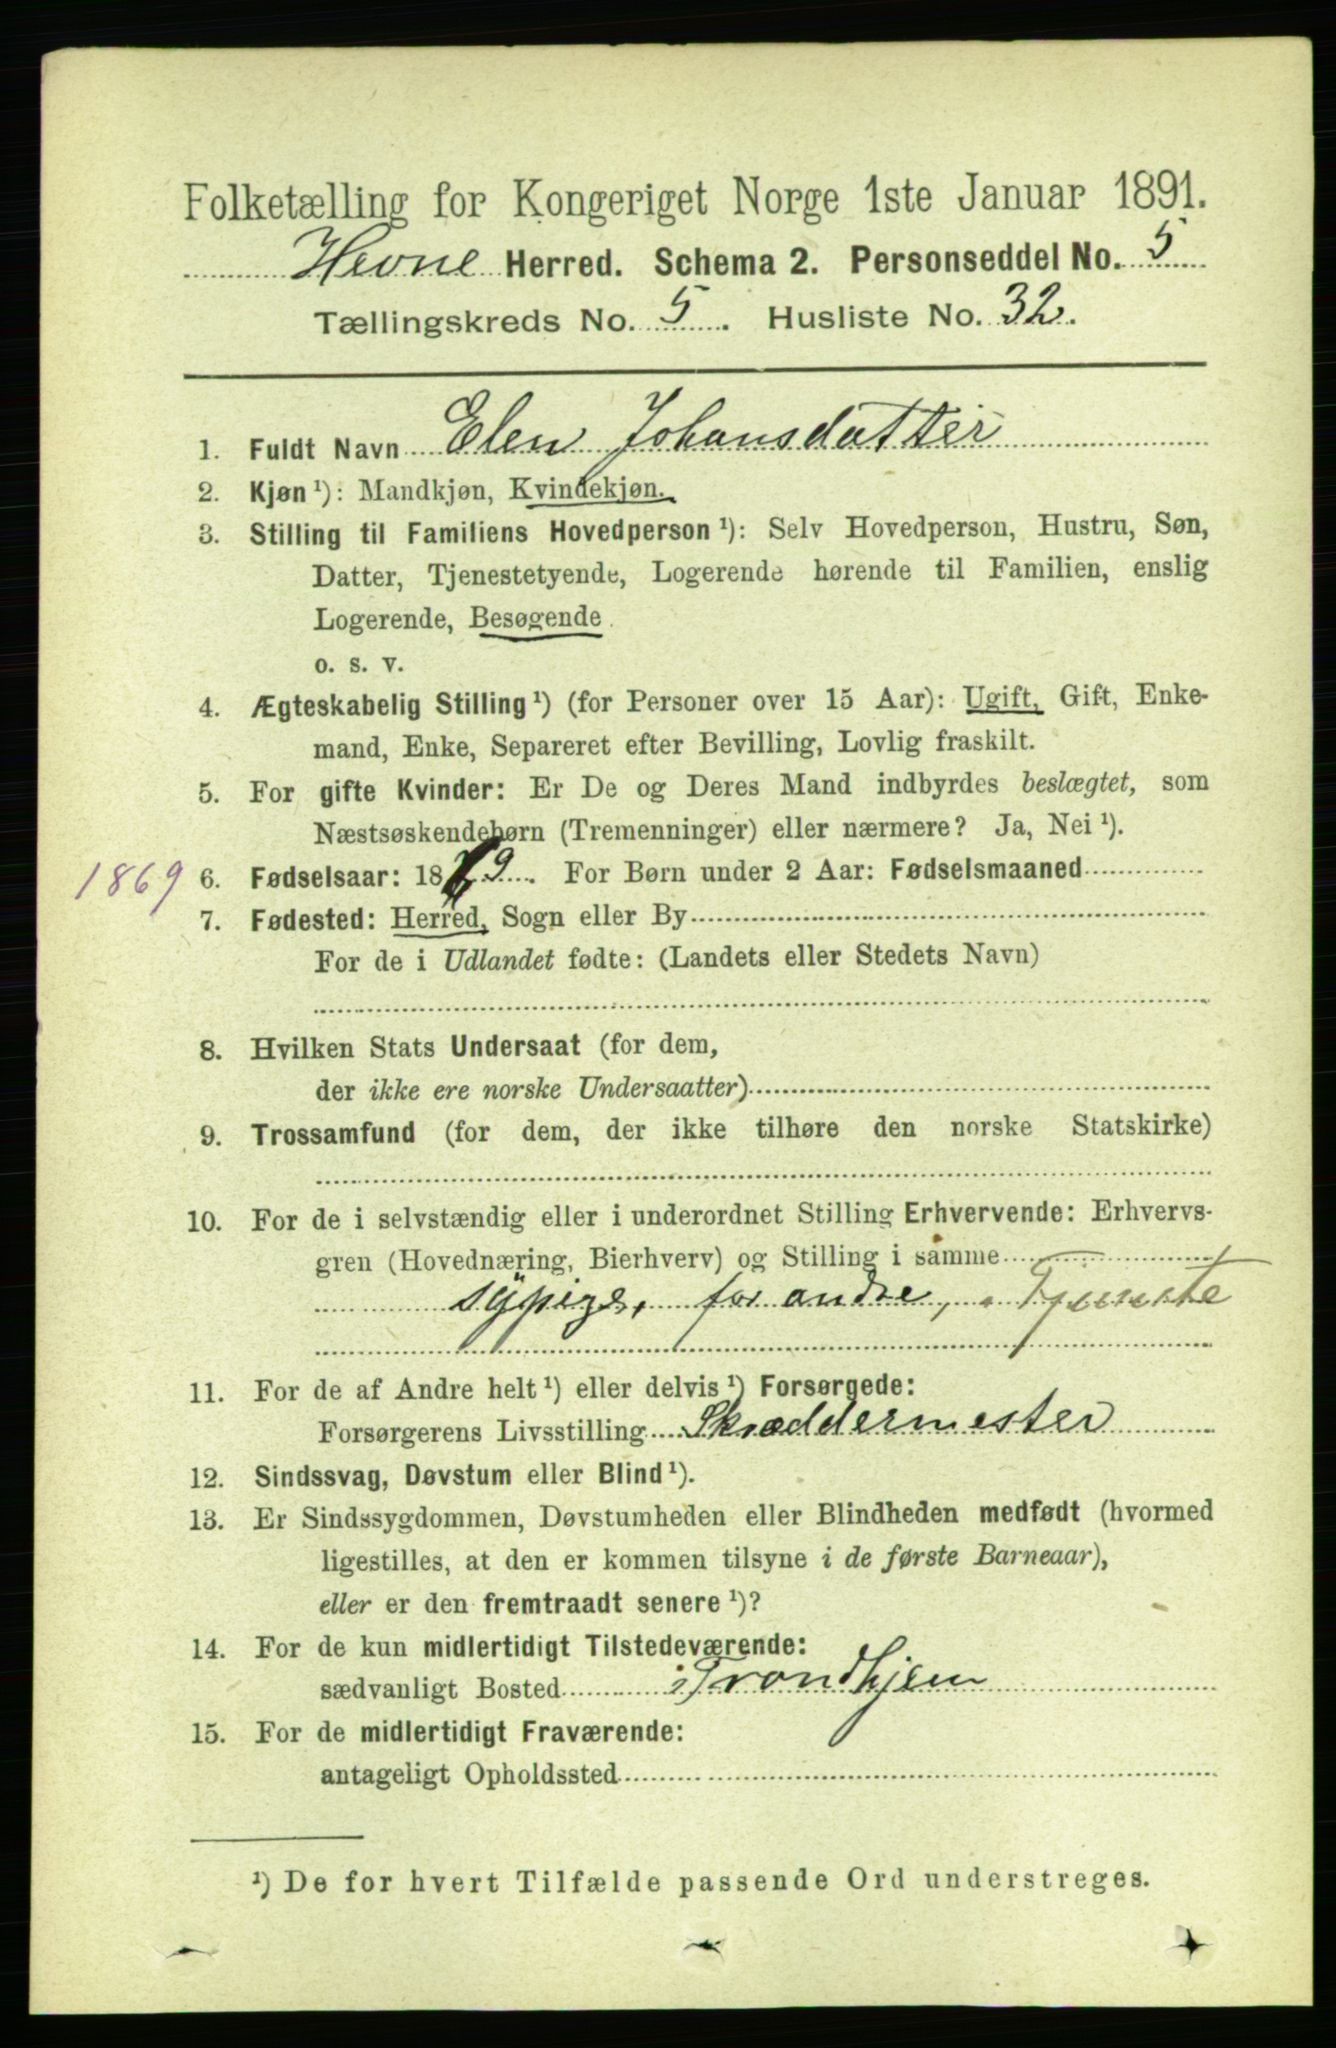 Folketælling for Kongeriget Norge 1ste Januar 1891.
Hevne Herred. Schema 2. Personseddel No. 5
Tællingskreds No. 5. Husliste No. 32.
1. Fuldt Navn Elen Johansdatter
2. Kjøn ¹): Mandkjøn, Kvindekjøn.
3. Stilling til Familiens Hovedperson ¹): Selv Hovedperson, Hustru, Søn,
Datter, Tjenestetyende, Logerende hørende til Familien, enslig
Logerende, Besøgende
o. s. v.
4. Ægteskabelig Stilling ¹) (for Personer over 15 Aar): Ugift, Gift, Enke-
mand, Enke, Separeret efter Bevilling, Lovlig fraskilt.
5. For gifte Kvinder: Er De og Deres Mand indbyrdes beslægtet, som
Næstsøskendebørn (Tremenninger) eller nærmere? Ja, Nei ¹).
1869 6. Fødselsaar: 1869. For Børn under 2 Aar: Fødselsmaaned
7. Fødested: Herred, Sogn eller By
For de i Udlandet fødte: (Landets eller Stedets Navn)
8. Hvilken Stats Undersaat (for dem,
der ikke ere norske Undersaatter)
9. Trossamfund (for dem, der ikke tilhøre den norske Statskirke)
10. For de i selvstændig eller i underordnet Stilling Erhvervende: Erhvervs-
gren (Hovednæring, Bierhverv) og Stilling i samme
sypige, for andre, Tjeneste
11. For de af Andre helt ¹) eller delvis ¹) Forsørgede:
Forsørgerens Livsstilling Skræddermester
12. Sindssvag, Døvstum eller Blind ¹).
13. Er Sindssygdommen, Døvstumheden eller Blindheden medfødt (hvormed
ligestilles, at den er kommen tilsyne i de første Barneaar),
eller er den fremtraadt senere ¹)?
14. For de kun midlertidigt Tilstedeværende:
sædvanligt Bosted i Trondhjem
15. For de midlertidigt Fraværende:
antageligt Opholdssted
¹) De for hvert Tilfælde passende Ord understreges.